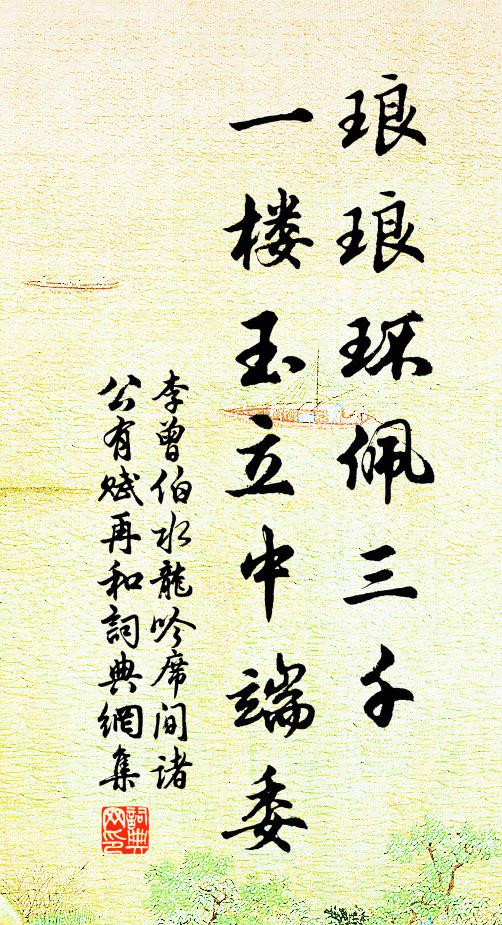 琅琅环佩三千
一楼玉立中端委
李曾伯水龍吟席间諸
公有赋再和詞典網集
詞典网印